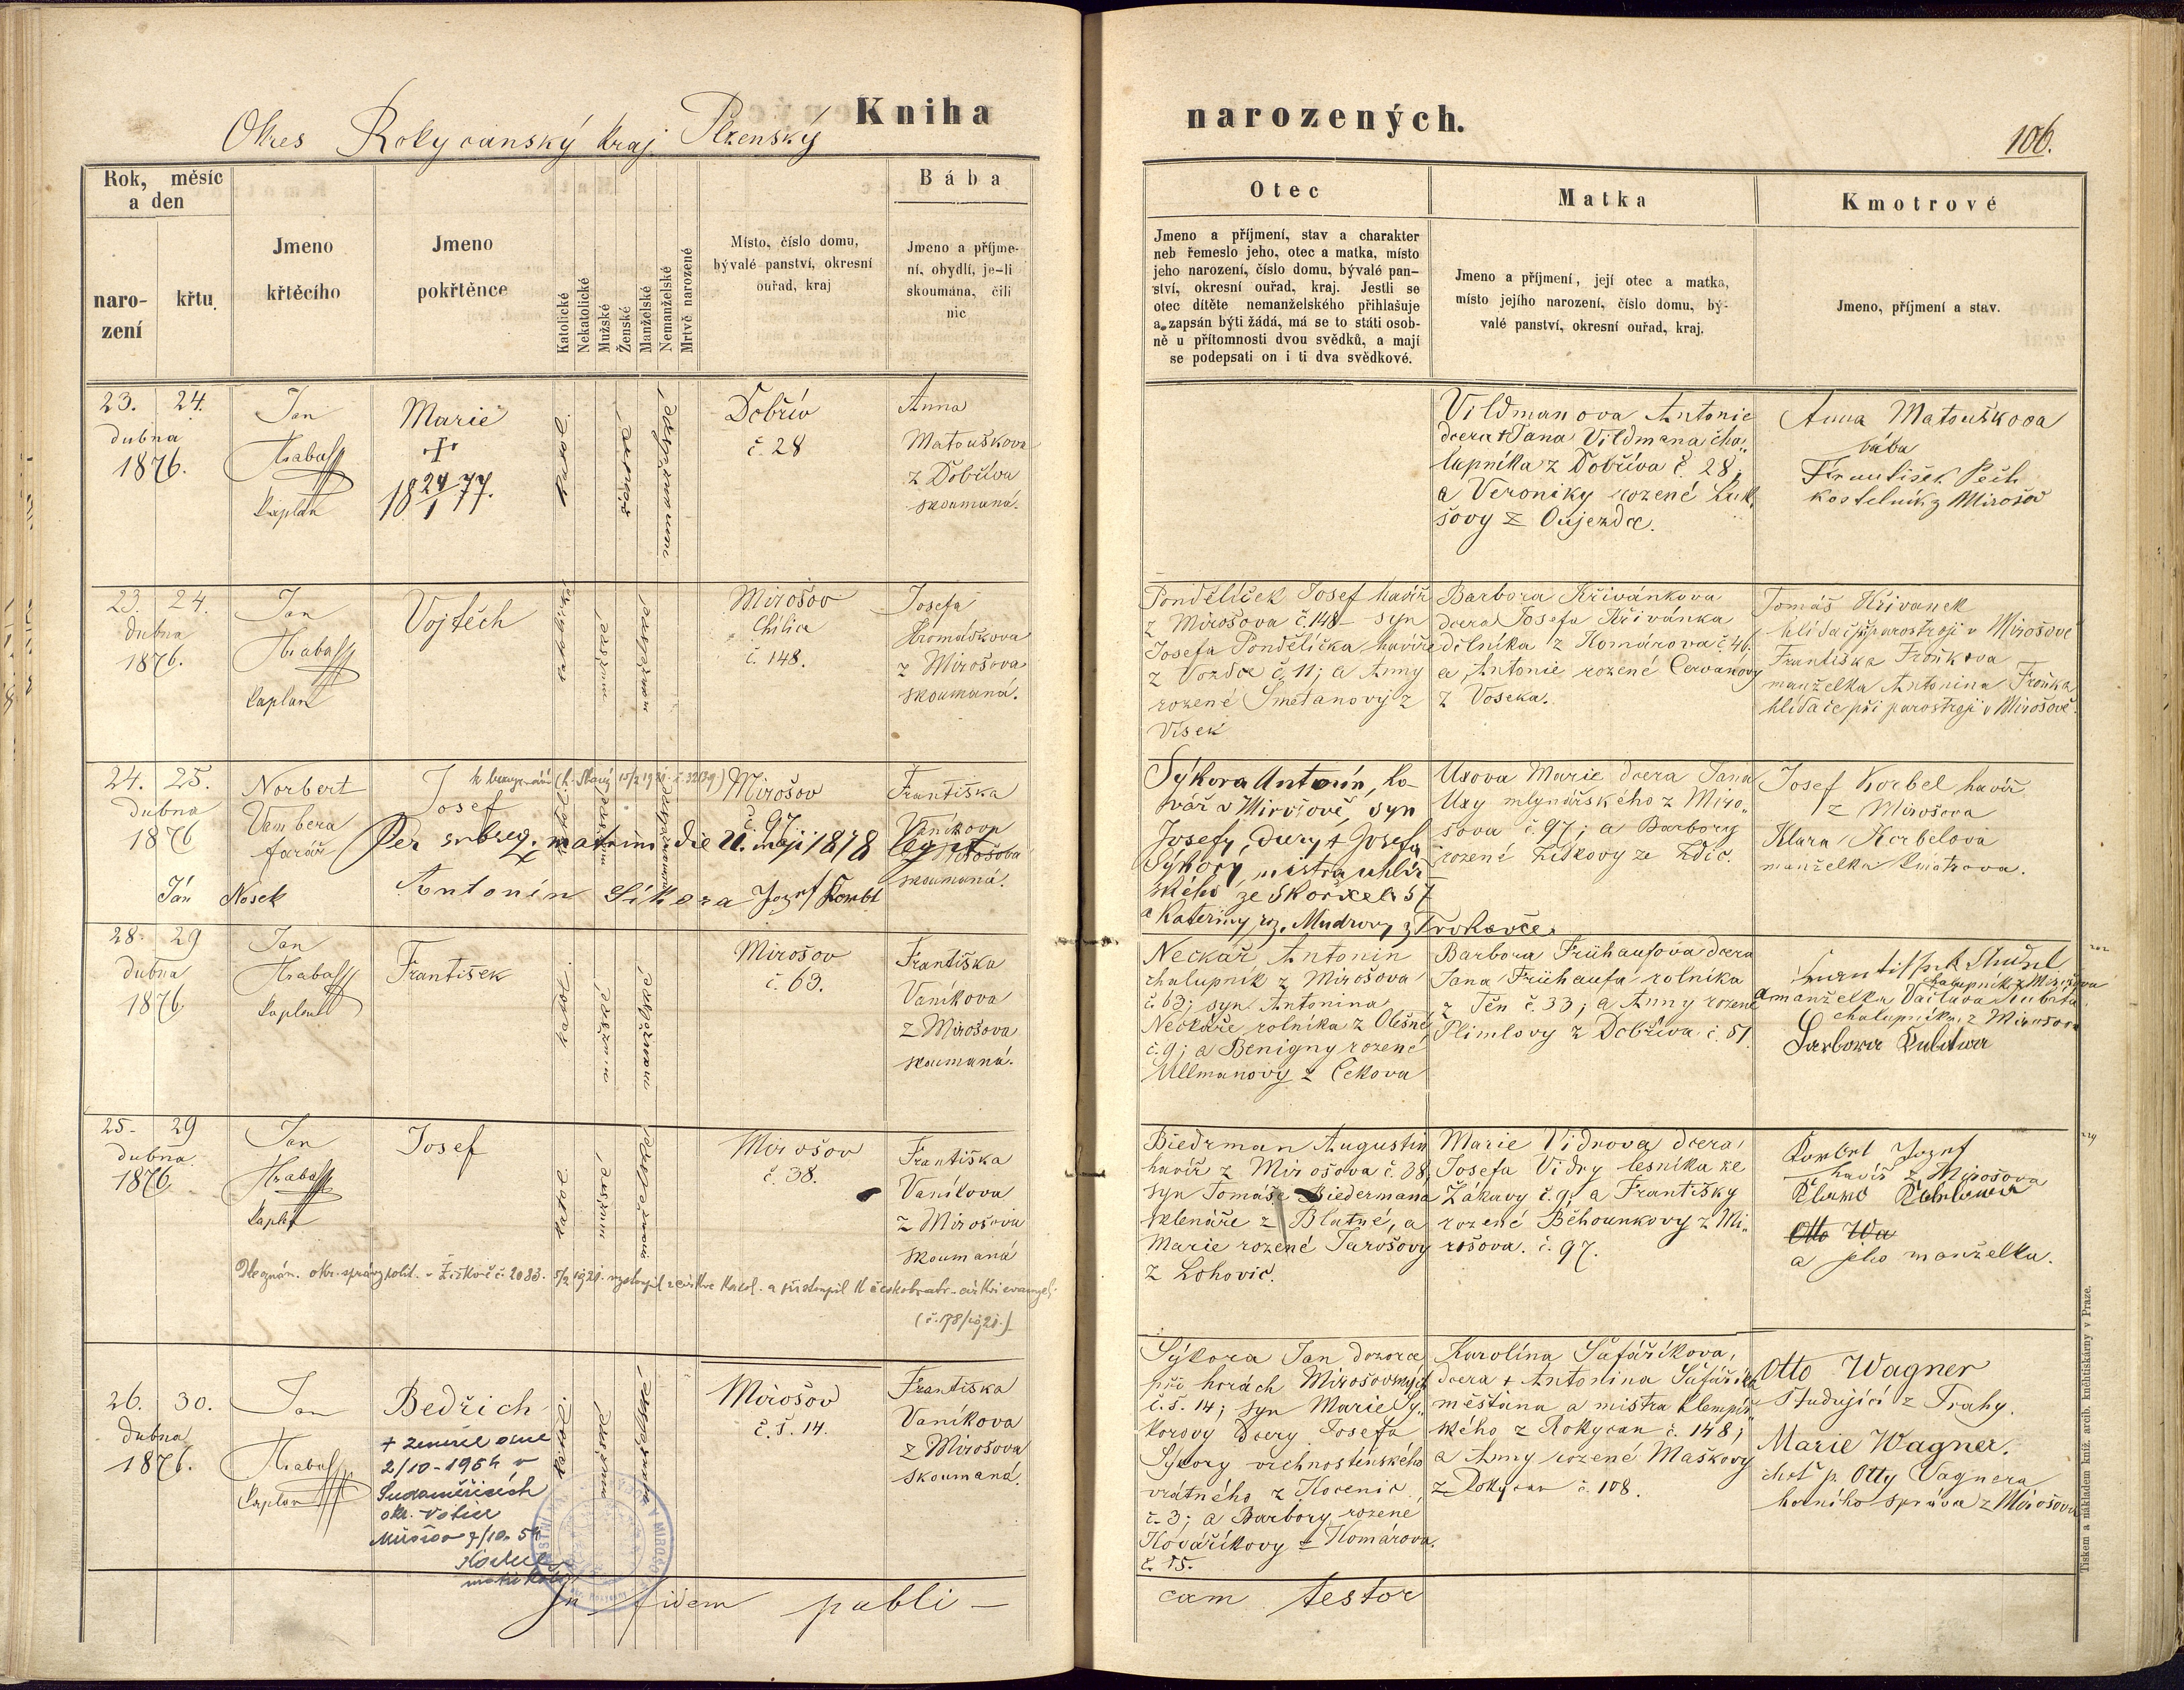 Kniha
narozených.
Okres Rokycanský kraj Plzenský
106.
Rok, měsíc
a den
naro-
zení
křtu
Jmeno
křtěcího
Jmeno
pokřtěnce
Katolické
Nekatolické
Mužské
Ženské
Manželské
Nemanželské
Mrtvě narozené
Místo, číslo domu,
bývalé panství, okresní
ouřad, kraj
Bába
Jmeno a příjme-
ní, obydlí, je-li
skoumána, čili
nic
Otec
Jmeno a příjmení, stav a charakter
neb řemeslo jeho, otec a matka, místo
jeho narození, číslo domu, bývalé pan-
ství, okresní ouřad, kraj. Jestli se
otec dítěte nemanželského přihlašuje
a zapsán býti žádá, má se to státi osob-
ně u přítomnosti dvou svědků, a mají
se podepsati on i ti dva svědkové.
Matka
Jmeno a příjmení, její otec a matka,
místo jejího narození, číslo domu, bý-
valé panství, okresní ouřad, kraj.
Kmotrové
Jmeno, příjmení a stav.
23. 24.
dubna
1876.
Jan
Hrabal
kaplan
Marie
+
18 24/1 77.
katol.
ženské
nemanželské
Dobřív
č. 28
Anna
Matouškova
z Dobříva
skoumaná.
Vildmanova Antonie
dcera + Jana Vildmana cha„
lupníka z Dobříva č. 28;
a Veroniky rozené Luk„
šovy z Oujezda.
Anna Matouškova
bába
František Pech
kostelník z Mirošov
23. 24.
dubna
1876.
Jan
Hrabal
kaplan
Vojtěch
katolické
mužské
manželské
Mirošov
Chílice
č. 148.
Josefa
Hromádkova
z Mirošova
skoumaná.
Pondělíček Josef havíř
z Mirošova č. 148 syn
Josefa Pondělíčka havíře
z Vozdce č. 11; a Anny
rozené Smetanovy z
Vísek
Barbora Křivánkova
dcera Josefa Křivánka
dělníka z Komárova č. 46.
a Antonie rozené Cervanovy
z Voseka.
Tomáš Křivanek
hlídač při parostroji v Mirošově
Františka Froňkova
manželka Antonina Froňka
hlídače při parostroji v Mirošově.
24. 25.
dubna
1876
Norbert
Vambera
farář
Josef
katol.
mužské
nemanželské
Mirošov
č. 97
Františka
Vaníkova
z Mirošova
skoumaná.
Per subseq. matrim. die 21. maji 1878 legit.
Ján Nosek
Antonín Síkora Jozef Korbl
Sýkora Antonín, ko-
vář v Mirošově, syn
Josefy, dcery + Josefa
Sýkory, mistra uhlíř
ského ze Skořice č. 57
a Kateriny, roz. Mudrovy z Trokavce.
Uxova Marie dcera Jana
Uxy mlynářského z Miro„
šova č. 97; a Barbory
rozené Ziskovy ze Zdic.
Josef Korbel havíř
z Mirošova
Klara Korbelova
manželka kmotrova.
28. 29
dubna
1876.
Jan
Hrabal
kaplan
František
katol.
mužské
manželské
Mirošov
č. 63.
Františka
Vaníkova
z Mirošova
skoumaná.
Neckař Antonin
chalupník z Mirošova
č. 63; syn Antonina
Neckáře rolníka z Olešné
č. 9; a Benigny rozené
Ullmanovy z Cekova
Barbora Frühaufova dcera
Jana Frühaufa rolníka
z Těn č. 33; a Anny rozené
Plimlovy z Dobříva č. 51.
chalupník z Mirošova
a manželka Václava
chalupníka z Mirošova
25. 29
dubna
1876
Jan
Hrabal
kaplan
Josef
katol.
mužské
manželské
Mirošov
č. 38.
Františka
Vaníkova
z Mirošova
skoumaná
(č. 178/1921.)
Biedrman Augustin
havíř z Mirošova č. 38,
syn Tomáše Biedermana
sklenáře z Blatné, a
Marie rozené Jarošovy
z Lohovic.
Marie Vidrova dcera
Josefa Vidry lesníka ze
Žákavy č. 9. a Františky
rozené Běhounkovy z Mi„
rošova č. 97.
Korbel Jozef
havíř z Mirošova
Otto Wa
a jeho manželka.
26. 30.
dubna
1876.
Jan
Hrabal
kaplan
Bedřich
+ zemřel dne
2/10-1954 v
Sudoměřicích
okr. Votice
Mirošov 7/10. 54
katol.
mužské
manželské
Mirošov
č. s. 14.
Františka
Vaníkova
z Mirošova
skoumaná.
Sýkora Jan dozorce
při horách Mirošovských
č. s. 14; syn Marie Sý„
korovy dcery Josefa
Sýkory vrchnostinského
vrátného z Hořenic
č. 3; a Barbory rozené
Kovaříkovy z Komárova.
č. 15.
Karolína Šafáříkova,
dcera + Antonina Šafáříka
měšťana a mistra klempíř„
ského z Rokycan č. 148;
a Anny rozené Maškovy
z Rokycan č. 108.
Otto Wagner
studující z Prahy.
Marie Wagner.
choť p. Otty Vagnera
horního správce z Mirošova
In fidem publi-
cam testor
Tiskem a nákladem kníž. arcib. kněhtiskárny v Praze.